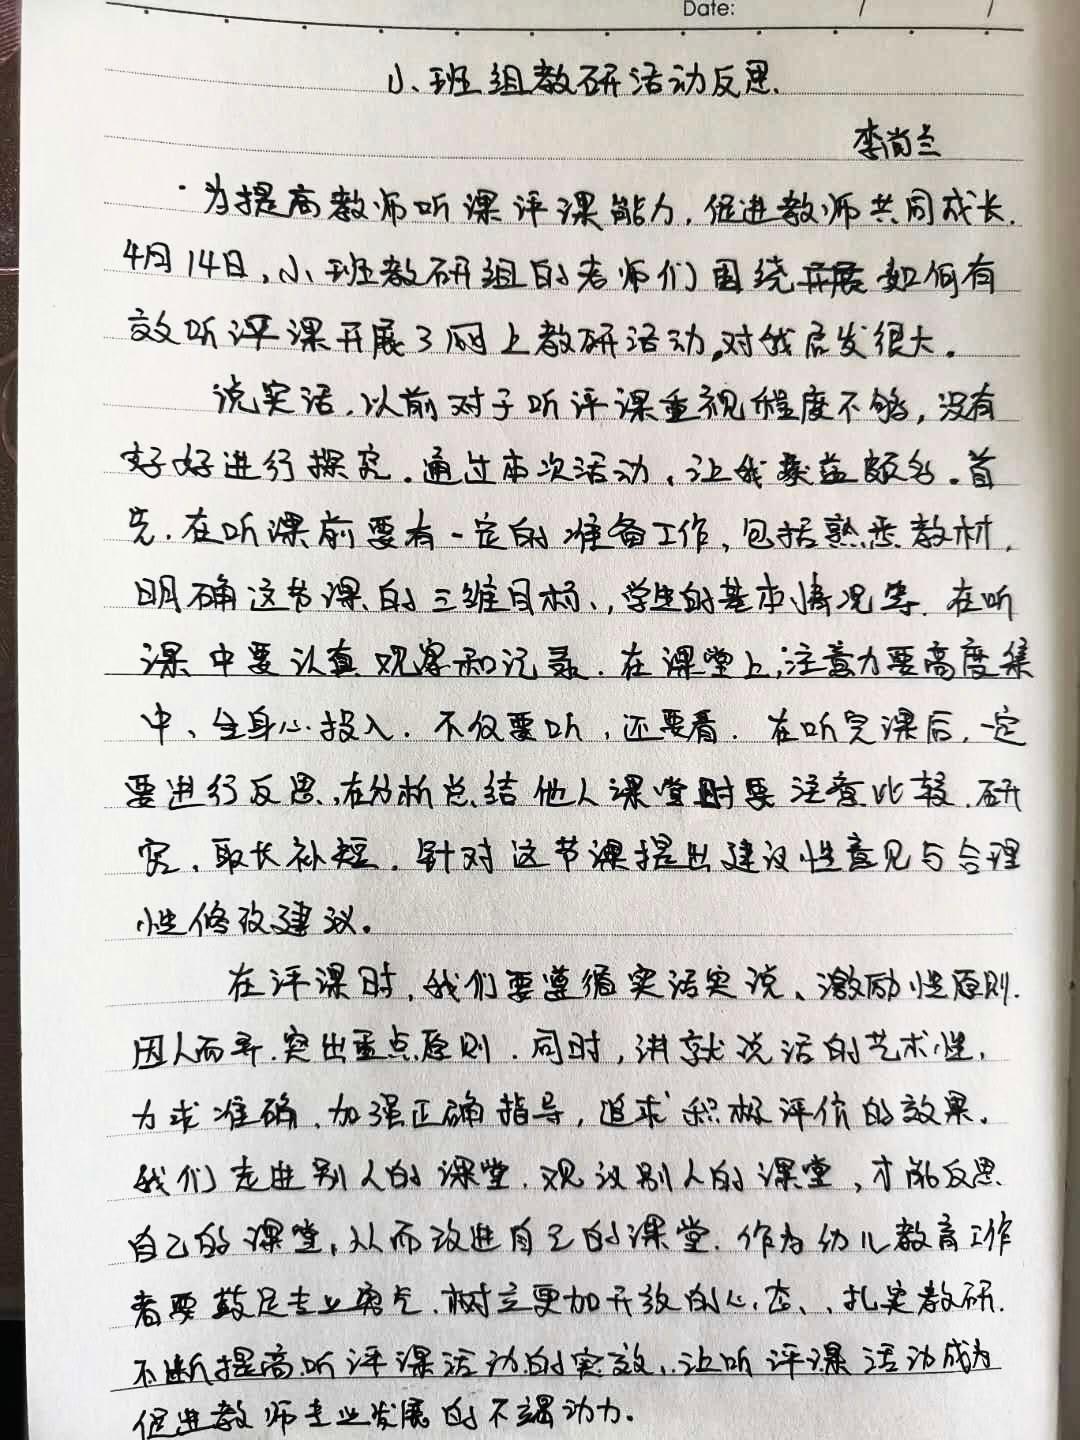 Date: / /
小班组教研活动反思
李尚兰
为提高教师听课评课能力,促进教师共同成长.
4月14日,小班教研组的老师们围绕开展如何有
效听评课开展了网上教研活动,对我启发很大。
说实话,以前对于听评课重视程度不够,没有
好好进行探究.通过本次活动,让我受益颇多.首
先.在听课前要有一定的准备工作,包括熟悉教材,
明确这节课的三维目标、学生的基本情况等.在听
课中要认真观察和记录.在课堂上,注意力要高度集
中、全身心投入.不仅要听,还要看.在听完课后,一定
要进行反思,在分析总结他人课堂时要注意比较.研
究、取长补短.针对这节课提出建议性意见与合理
性修改建议。
在评课时,我们要遵循实话实说、激励性原则.
因人而异.突出重点原则.同时,讲就说话的艺术性,
力求准确.加强正确指导,追求积极评价的效果.
我们走进别人的课堂.观议别人的课堂,才能反思
自己的课堂,从而改进自己的课堂.作为幼儿教育工作
者要鼓足专业勇气.树立更加开放的心态、扎实教研.
不断提高听评课活动的实效,让听评课活动成为
促进教师专业发展的不竭动力.